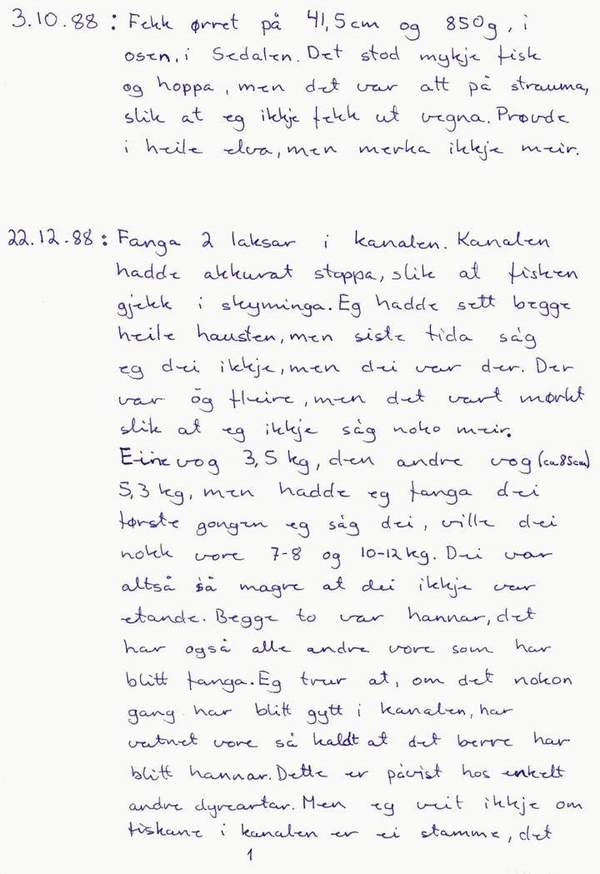 3.10.88: Fekk ørret på 41,5cm og 850g, i
osen, i Sedalen. Det stod mykje fisk
og hoppa, men det var att på strauma,
slik at eg ikkje fekk ut vegna. Prøvde
i heile elva, men merka ikkje meir.
22.12.88: Fanga 2 laksar i kanalen. Kanalen
hadde akkurat stoppa, slik at fisken
gjekk i skyminga. Eg hadde sett begge
heile hausten, men siste tida såg
eg dei ikkje, men dei var der. Der
var óg fleire, men det vart mørkt
slik at eg ikkje såg noko meir.
Eine vog 3,5 kg, den andre vog (ca 85cm)
5,3 kg, men hadde eg fanga dei
første gongen eg såg dei, ville dei
nokk vore 7-8 og 10-12kg. Dei var
altså så magre at dei ikkje var
etande. Begge to var hannar, det
har også alle andre vore som har
blitt fanga. Eg trur at, om det nokon
gang har blitt gytt i kanalen, har
vatnet vore så kaldt at det berre har
blitt hannar. Dette er påvist hos enkelt
andre dyreartar. Men eg veit ikkje om
fiskane i kanalen er ei stamme, det
1